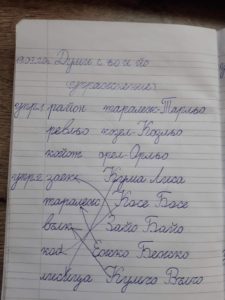 Думи с ьо и йо
(упражнение)
упр.1 район таралеж-Таральо
ревльо козел-Козльо
койот орел-Орльо
упр.2 заек Кума Лиса
таралеж Косе Босе
вълк Зайо Байо
кос Ежко Бежко
лисица Кумчо Вълчо